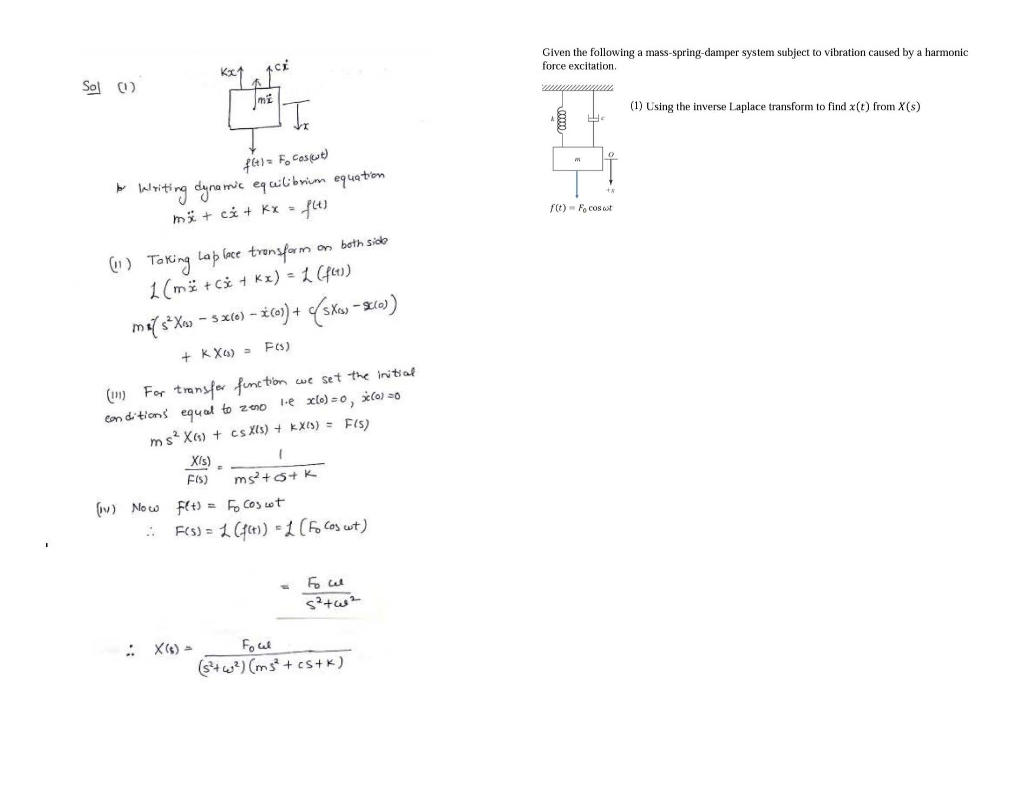 Sol (1)
Kx
cẋ
mẍ
x
f(t) = F₀ cos(ωt)
Writing dynamic equilibrium equation
mẍ + cẋ + Kx = f(t)
(ii) Taking Laplace transform on both side
L(mẍ + cẋ + Kx) = L(f(t))
m(s²X(s) - sx(0) - ẋ(0)) + c(sX(s) - x(0))
+ KX(s) = F(s)
(iii) For transfer function we set the initial
conditions equal to zero i.e x(0)=0, ẋ(0)=0
ms²X(s) + csX(s) + kX(s) = F(s)
X(s)/F(s) = 1/(ms²+cs+K)
(iv) Now f(t) = F₀ cos ωt
∴ F(s) = L(f(t)) = L(F₀ cos ωt)
= F₀ω/(s²+ω²)
∴ X(s) = F₀ω/((s²+ω²)(ms²+cs+K))
Given the following a mass-spring-damper system subject to vibration caused by a harmonic
force excitation.
(1) Using the inverse Laplace transform to find x(t) from X(s)
k
c
m
O
+x
f(t) = F₀ cos ωt